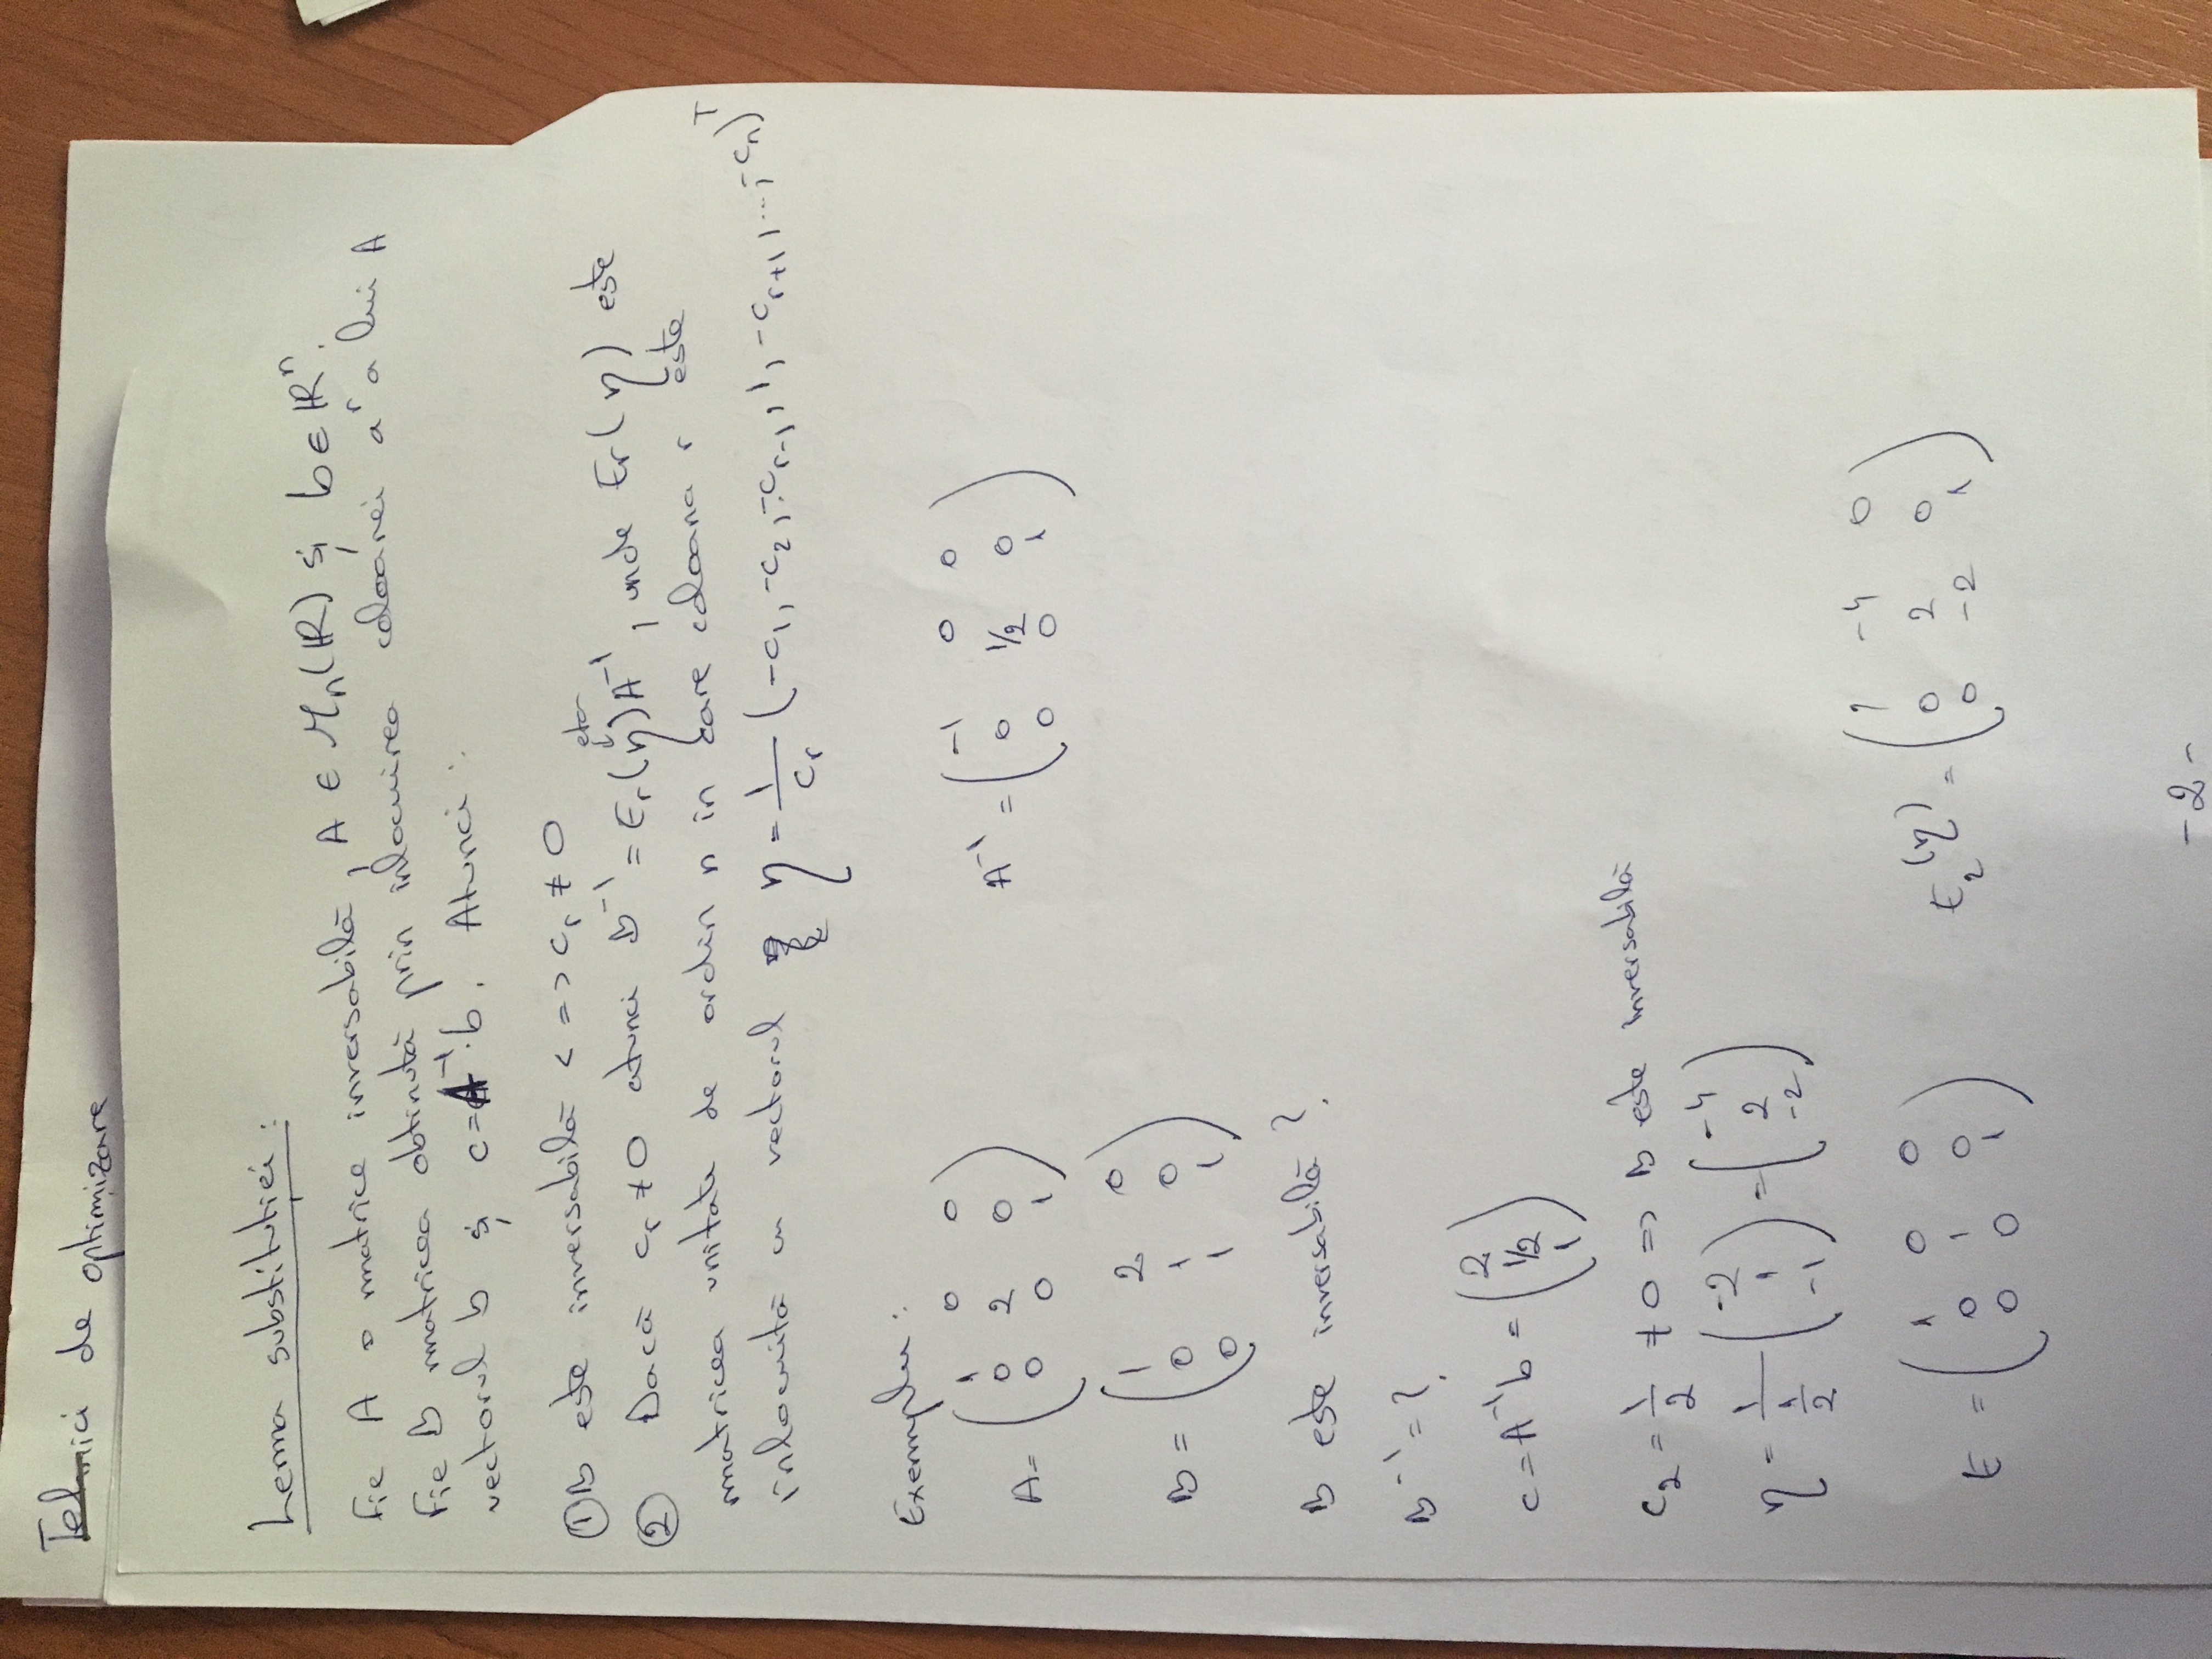 Tehnici de optimizare
Lema substituției:
Fie A o matrice inversabilă, A ∈ Mn(IR) și b ∈ IRⁿ.
Fie B matricea obținută prin înlocuirea coloanei aʳ a lui A
vectorul b și c=A⁻¹·b. Atunci:
① B este inversabilă <=> cr ≠ 0
② Dacă cr ≠ 0 atunci B⁻¹ = Er(η)A⁻¹, unde Er(η) este
eta
matricea unitate de ordin n în care coloana r este
înlocuită cu vectorul η = 1/cr (-c1, -c2, ..., -cr-1, 1, -cr+1, ..., -cn)ᵀ
Exemplu:
A = (1 0 0
0 2 0
0 0 1)
A⁻¹ = (-1 0 0
0 1/2 0
0 0 1)
B = (1 2 0
0 1 0
0 1 1)
B este inversabilă?
B⁻¹ = ?
c = A⁻¹b = (2
1/2
1)
c2 = 1/2 ≠ 0 => B este inversabilă
η = 1/(1/2) (-2
1
-1) = (-4
2
-2)
E = (1 0 0
0 1 0
0 0 1)
E2(η) = (1 -4 0
0 2 0
0 -2 1)
-2-